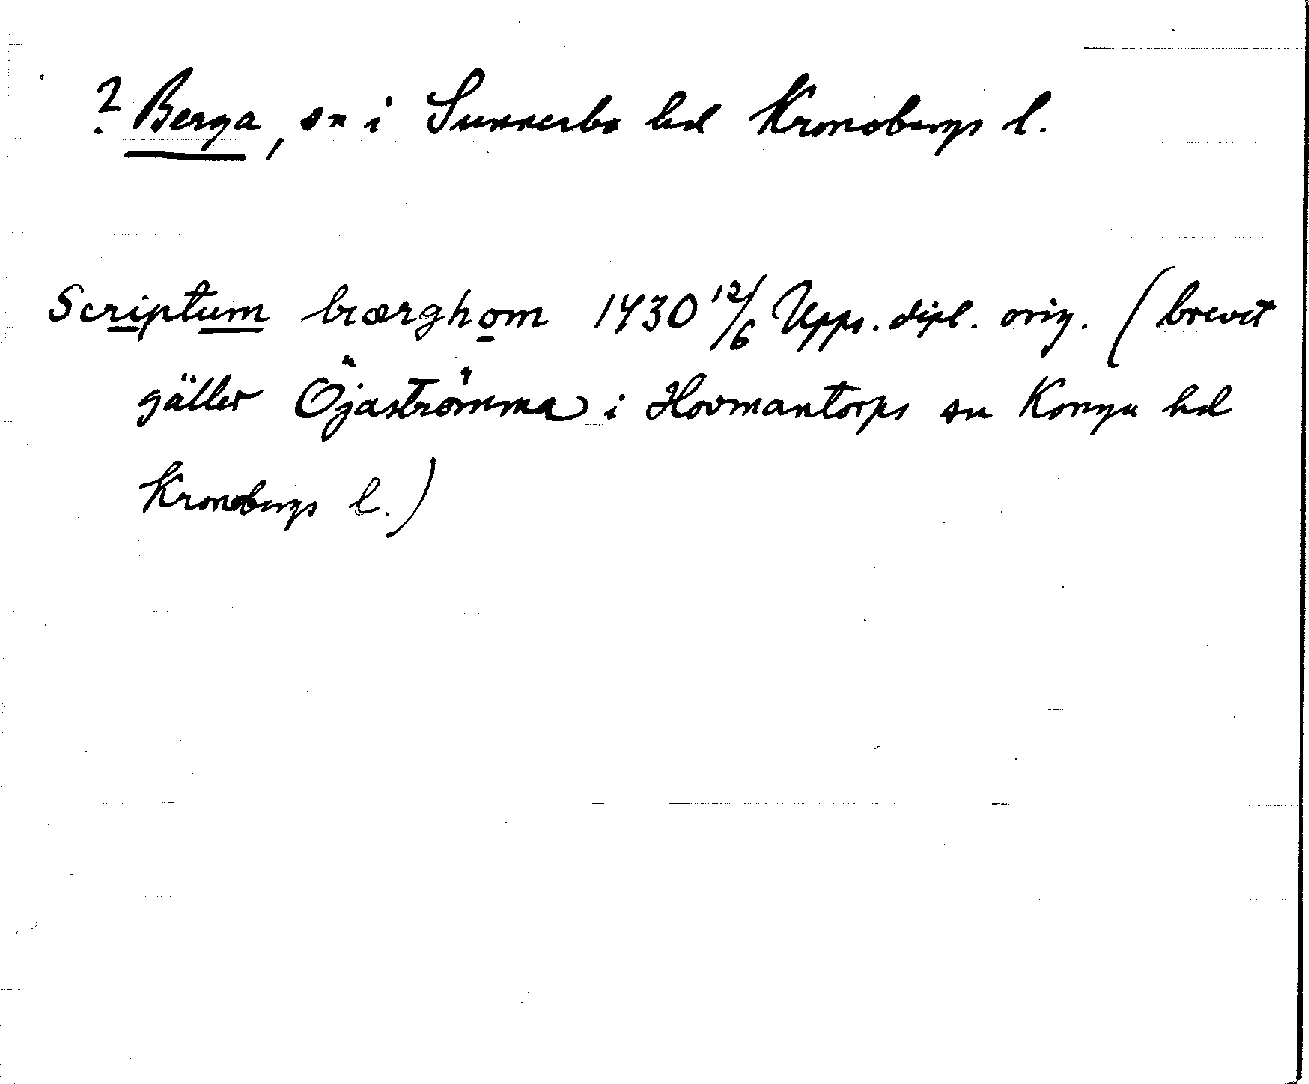 ? Berga, sn i Sunnerbo hd Kronobergs l.
Scriptum bærghom 1430 12/6 Upps. dipl. orig. (brevet
gäller Öjaströmma i Hovmantorps sn Konga hd
Kronobergs l.)